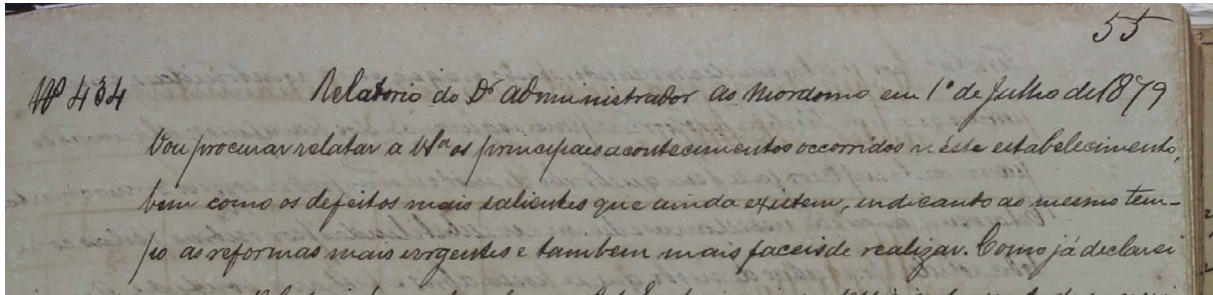 55
Nº 434 Relatorio do Dr Administrador ao Mordomo em 1º de Julho de 1879
Vou procurar relatar a VSª os principaes acontecimentos occorridos n'éste estabelecimento,
bem como os defeitos mais salientes que ainda existem, indicando ao mesmo tem-
po as reformas mais urgentes e tambem mais faceis de realizar. Como já declarei